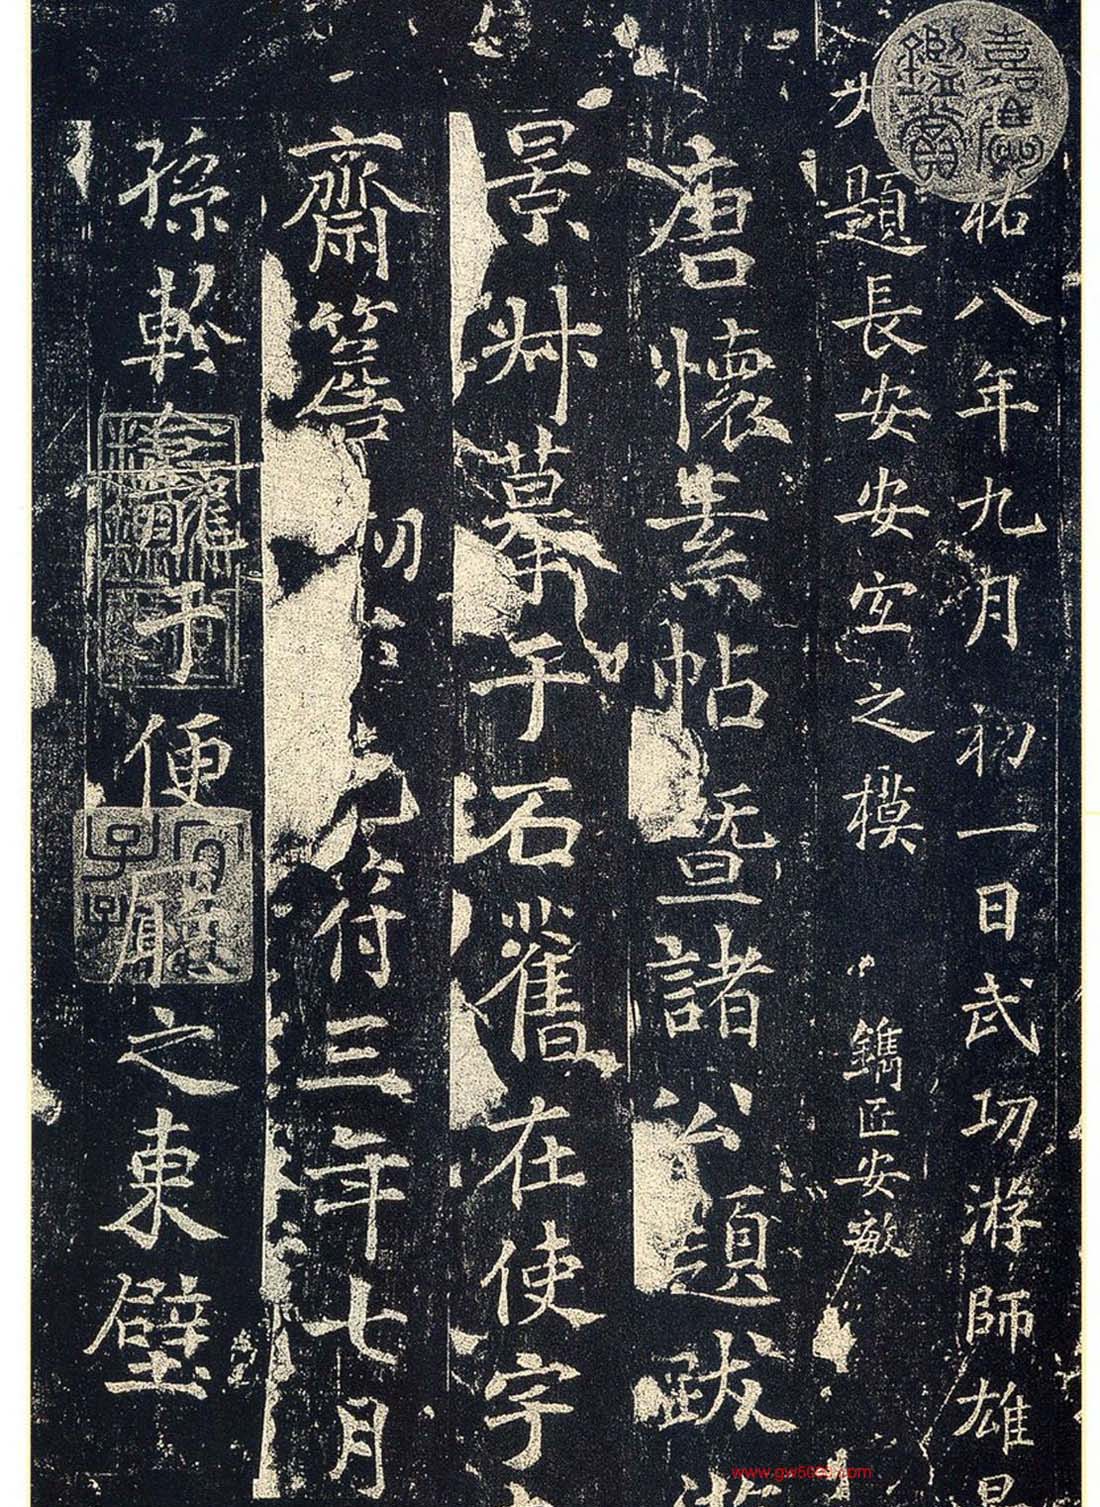 祐八年九月初一日武功游師雄景
題長安安宜之模 鐫匠安敏
唐懷素帖暨諸公題跋游
景叔摹于石舊在使宇
齋 元符三年七月
孫軫 于便廳之東壁
www.gw5000.com